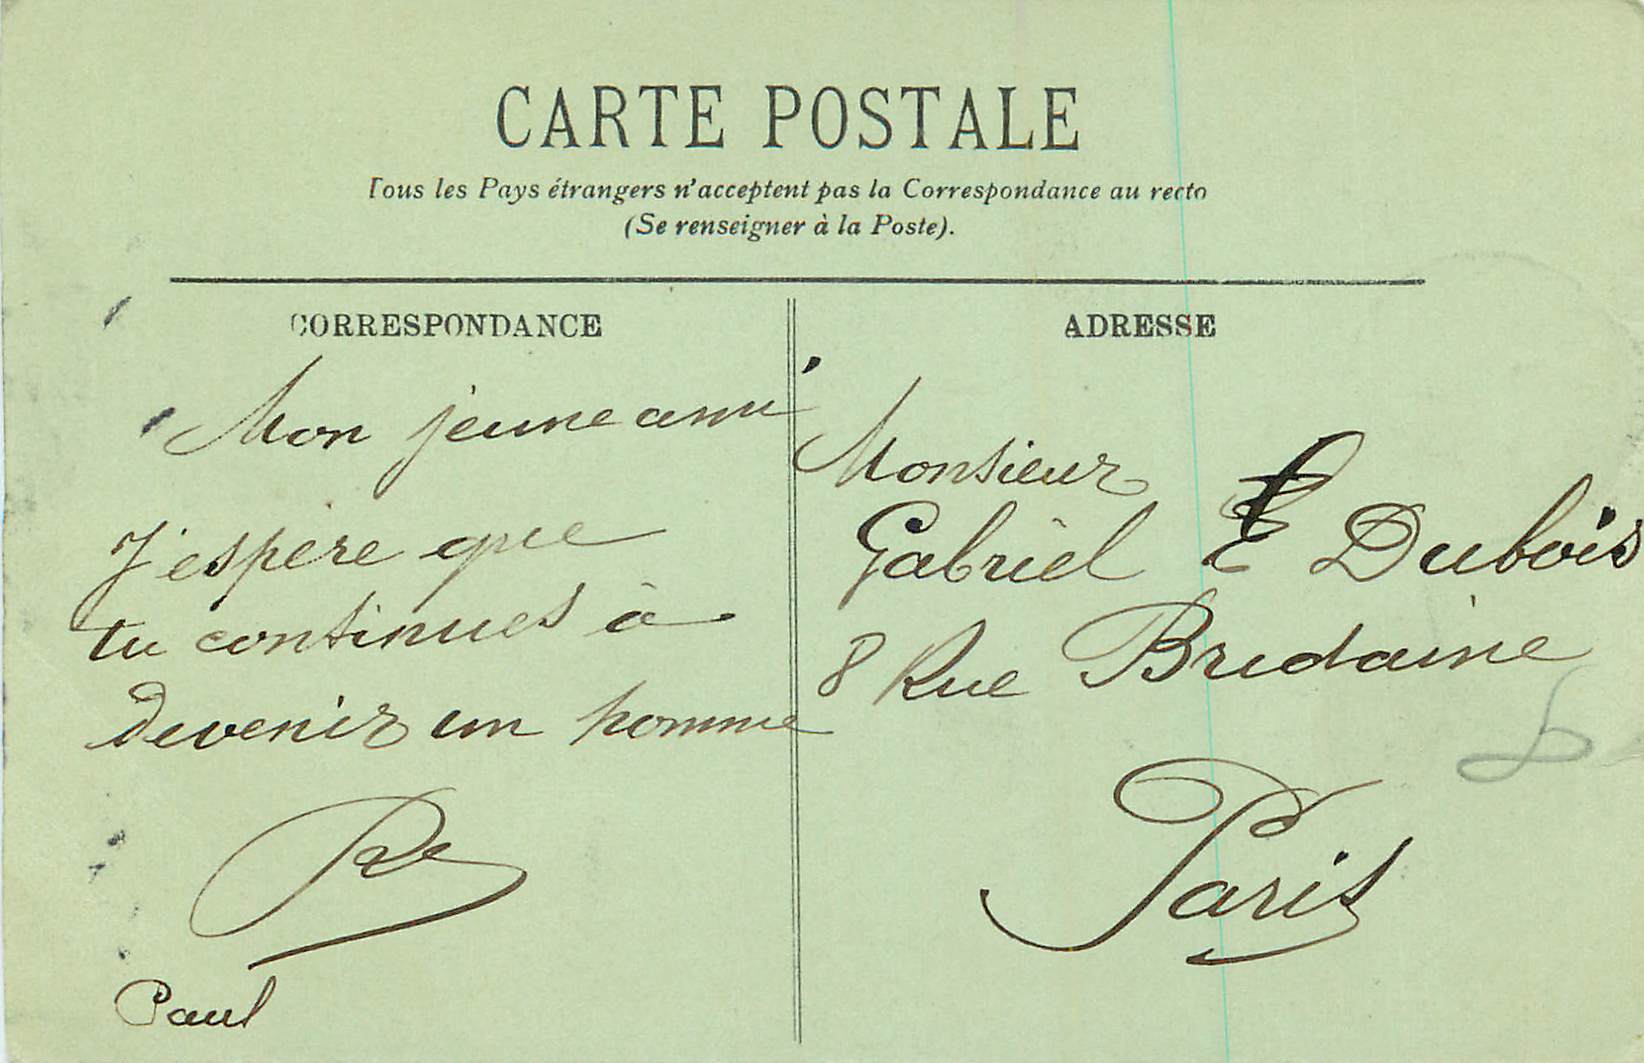 CARTE POSTALE
Tous les Pays étrangers n'acceptent pas la Correspondance au recto
(Se renseigner à la Poste).
CORRESPONDANCE
Mon jeune ami
J'espère que
tu continues à
devenir un homme
Paul
ADRESSE
Monsieur
Gabriel E Dubois
8 Rue Bridaine
Paris